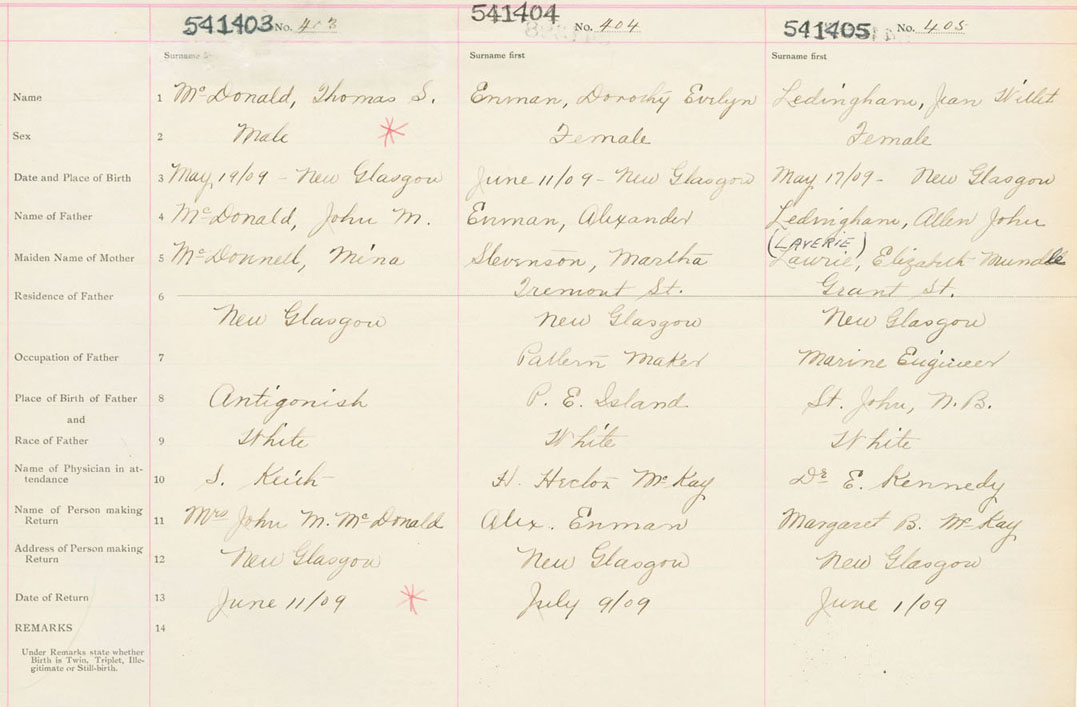 541403 No. 403 541404 No. 404 541405 No. 405
Surname Surname first Surname first
Name 1 McDonald, Thomas S. Enman, Dorothy Evelyn Ledingham, Jean Willet
Sex 2 Male Female Female
Date and Place of Birth 3 May 19/09 - New Glasgow June 11/09 - New Glasgow May 17/09 - New Glasgow
Name of Father 4 McDonald, John M. Enman, Alexander Ledingham, Allen John
(LAVERIE)
Maiden Name of Mother 5 McDonnell, Mina Stevenson, Martha Laurie, Elizabeth Mundle
Residence of Father 6 Tremont St. Grant St.
New Glasgow New Glasgow New Glasgow
Occupation of Father 7 Pattern Maker Marine Engineer
Place of Birth of Father 8 Antigonish P. E. Island St. John, N.B.
and
Race of Father 9 White White White
Name of Physician in at-
tendance 10 S. Keith H. Hector McKay Dr E. Kennedy
Name of Person making
Return 11 Mrs John M. McDonald Alex. Enman Margaret B. McKay
Address of Person making
Return 12 New Glasgow New Glasgow New Glasgow
Date of Return 13 June 11/09 July 9/09 June 1/09
REMARKS 14
Under Remarks state whether
Birth is Twin, Triplet, Ille-
gitimate or Still-birth.